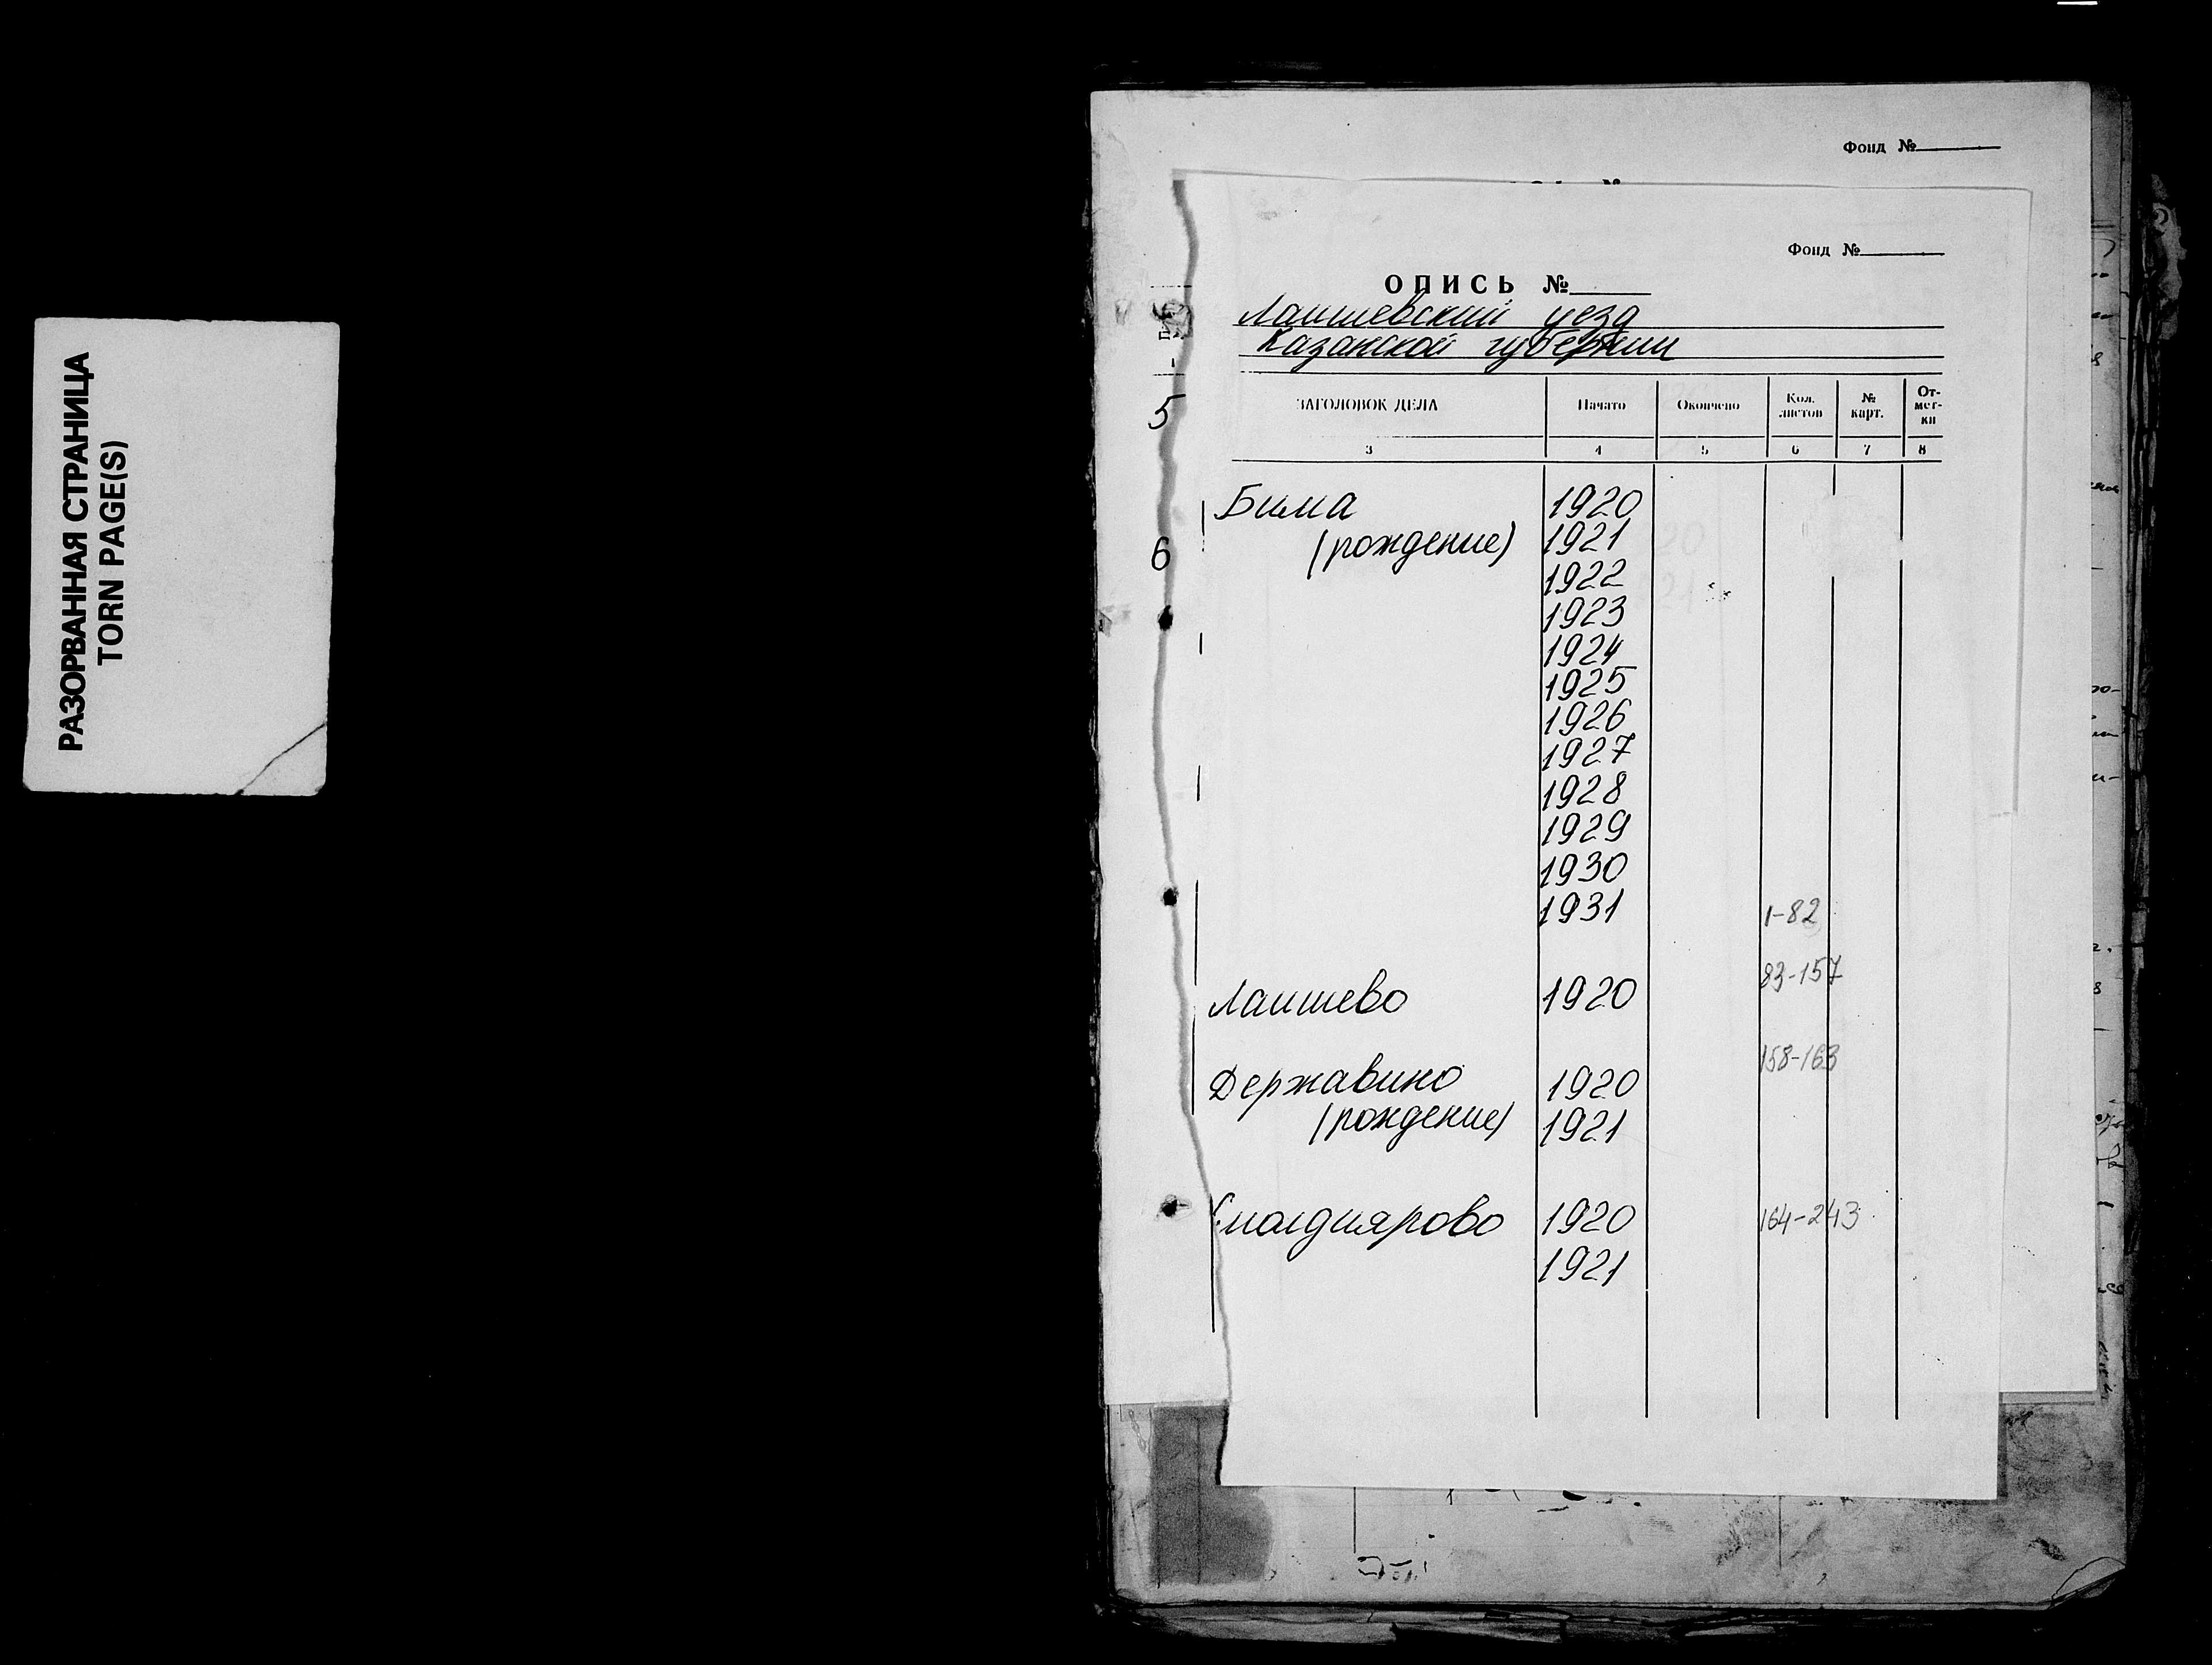 РАЗОРВАННАЯ СТРАНИЦА
TORN PAGE(S)
Фонд №
Фонд №
ОПИСЬ №
Лаишевский уезд
Казанской губернии
ЗАГОЛОВОК ДЕЛА Начато Окончено Кол. листов № карт. От-мет-ки
3 4 5 6 7 8
5
6
Бима 1920
(рождение) 1921
1922
1923
1924
1925
1926
1927
1928
1929
1930
1931 1-82
83-157
Лаишево 1920
158-163
Державино 1920
(рождение) 1921
1920 164-243
1921